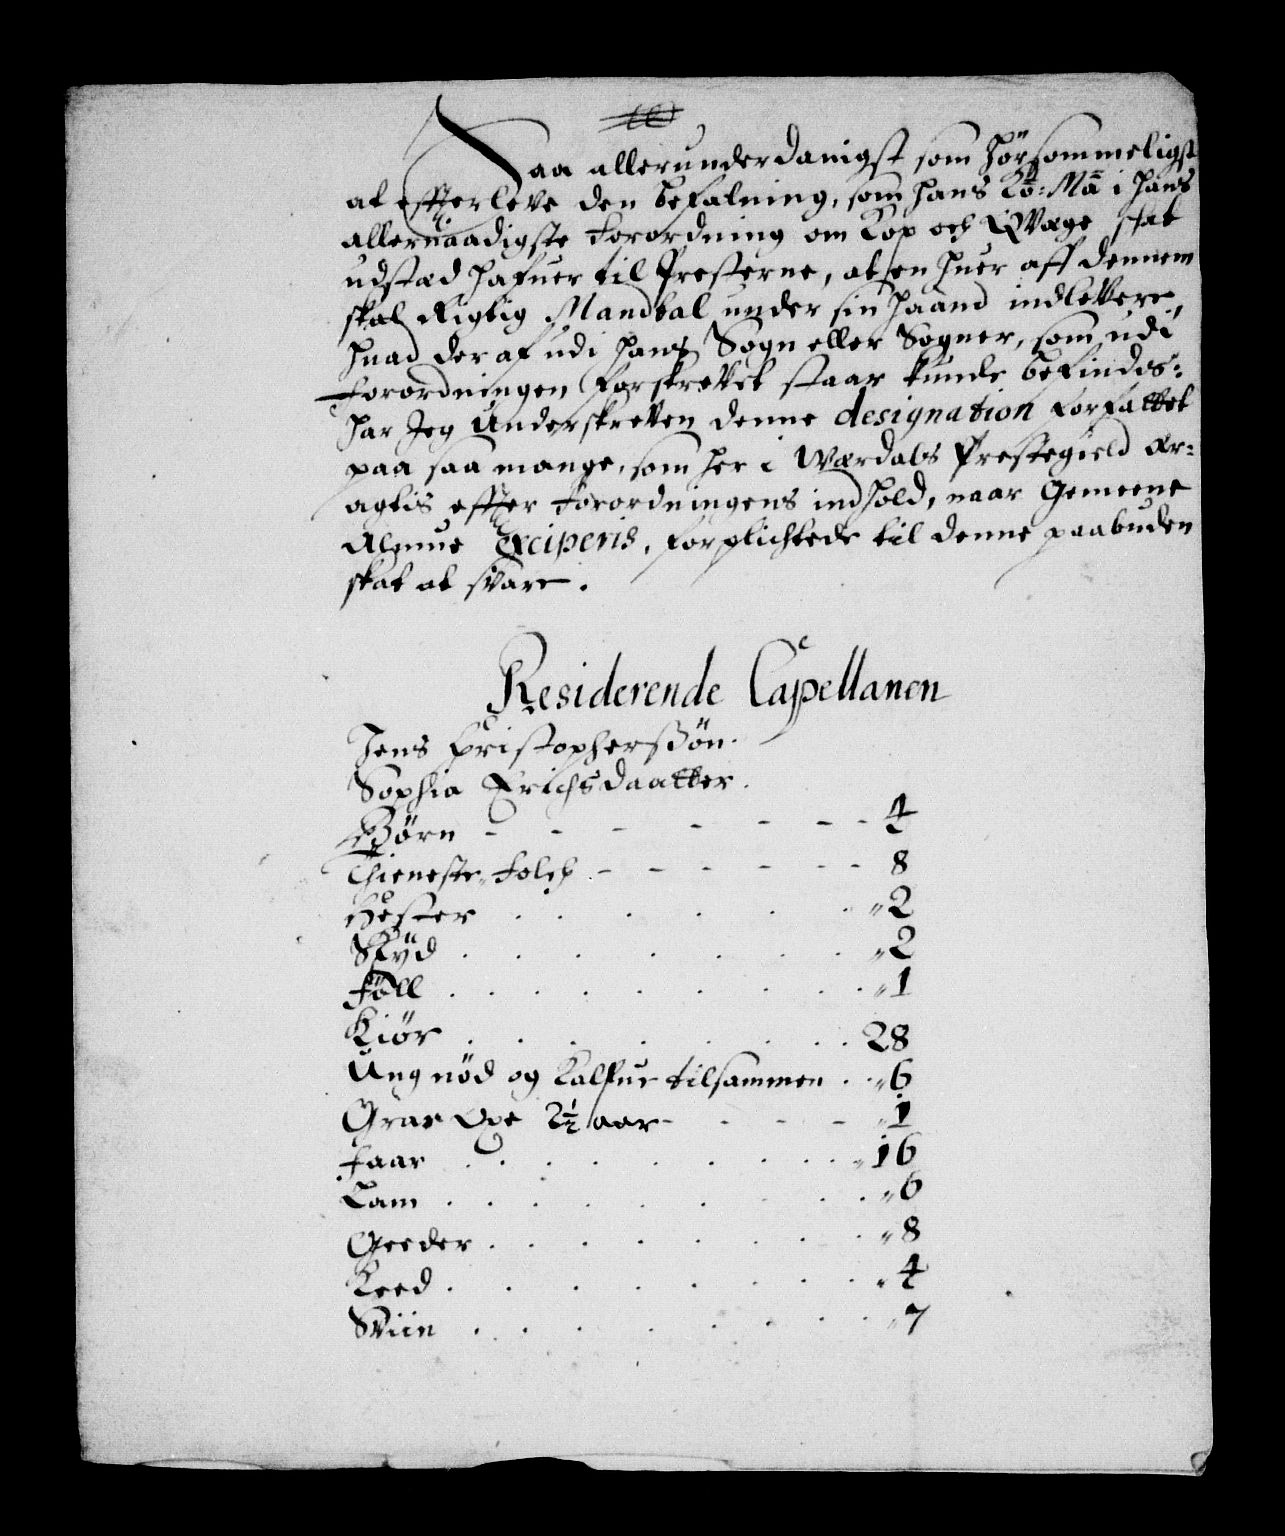 Saa allerunderdanigst som hörsommeligst
at effterleve den befalning, som hans Ko: Ma i hans
allernaadigste Forordning om Kop och Qvæge skat
udstæd hafuer til Presterne, at en huer aff dennem
skal Rigtig Mandtal under sin haand indlevere,
huad der af udi hans Sogn eller Sogner, som udi
Forordningen forskrevet staar kunde befindes:
har Jeg Underskreven denne designation forfattet
paa saa mange, som her i Værdals Prestegield er:
agtis effter Forordningens indhold, naar Gemeene
Almue Exciperis, forplichtede til denne paabuden
skat at svare.
Residerende Capellanen
Jens Christophersßön.
Sophia Erichsdaatter.
Börn - - - - - - - 4
Thieneste-Folch - - - - - - 8
Hester . . . . . . „2
Skyd . . . . . . . „2
Föll . . . . . . . . „1
Kiör . . . . . . . . 28
Ung nöd og Kalfue tilsammen . . „6
Graae Oxe 2½ aar - - - - „1
Faar . . . . . . . . „16
Lam . . . . . . . . „6
Geeder . . . . . . . „8
Keed . . . . . . . . „4
Sviin . . . . . . . . „7